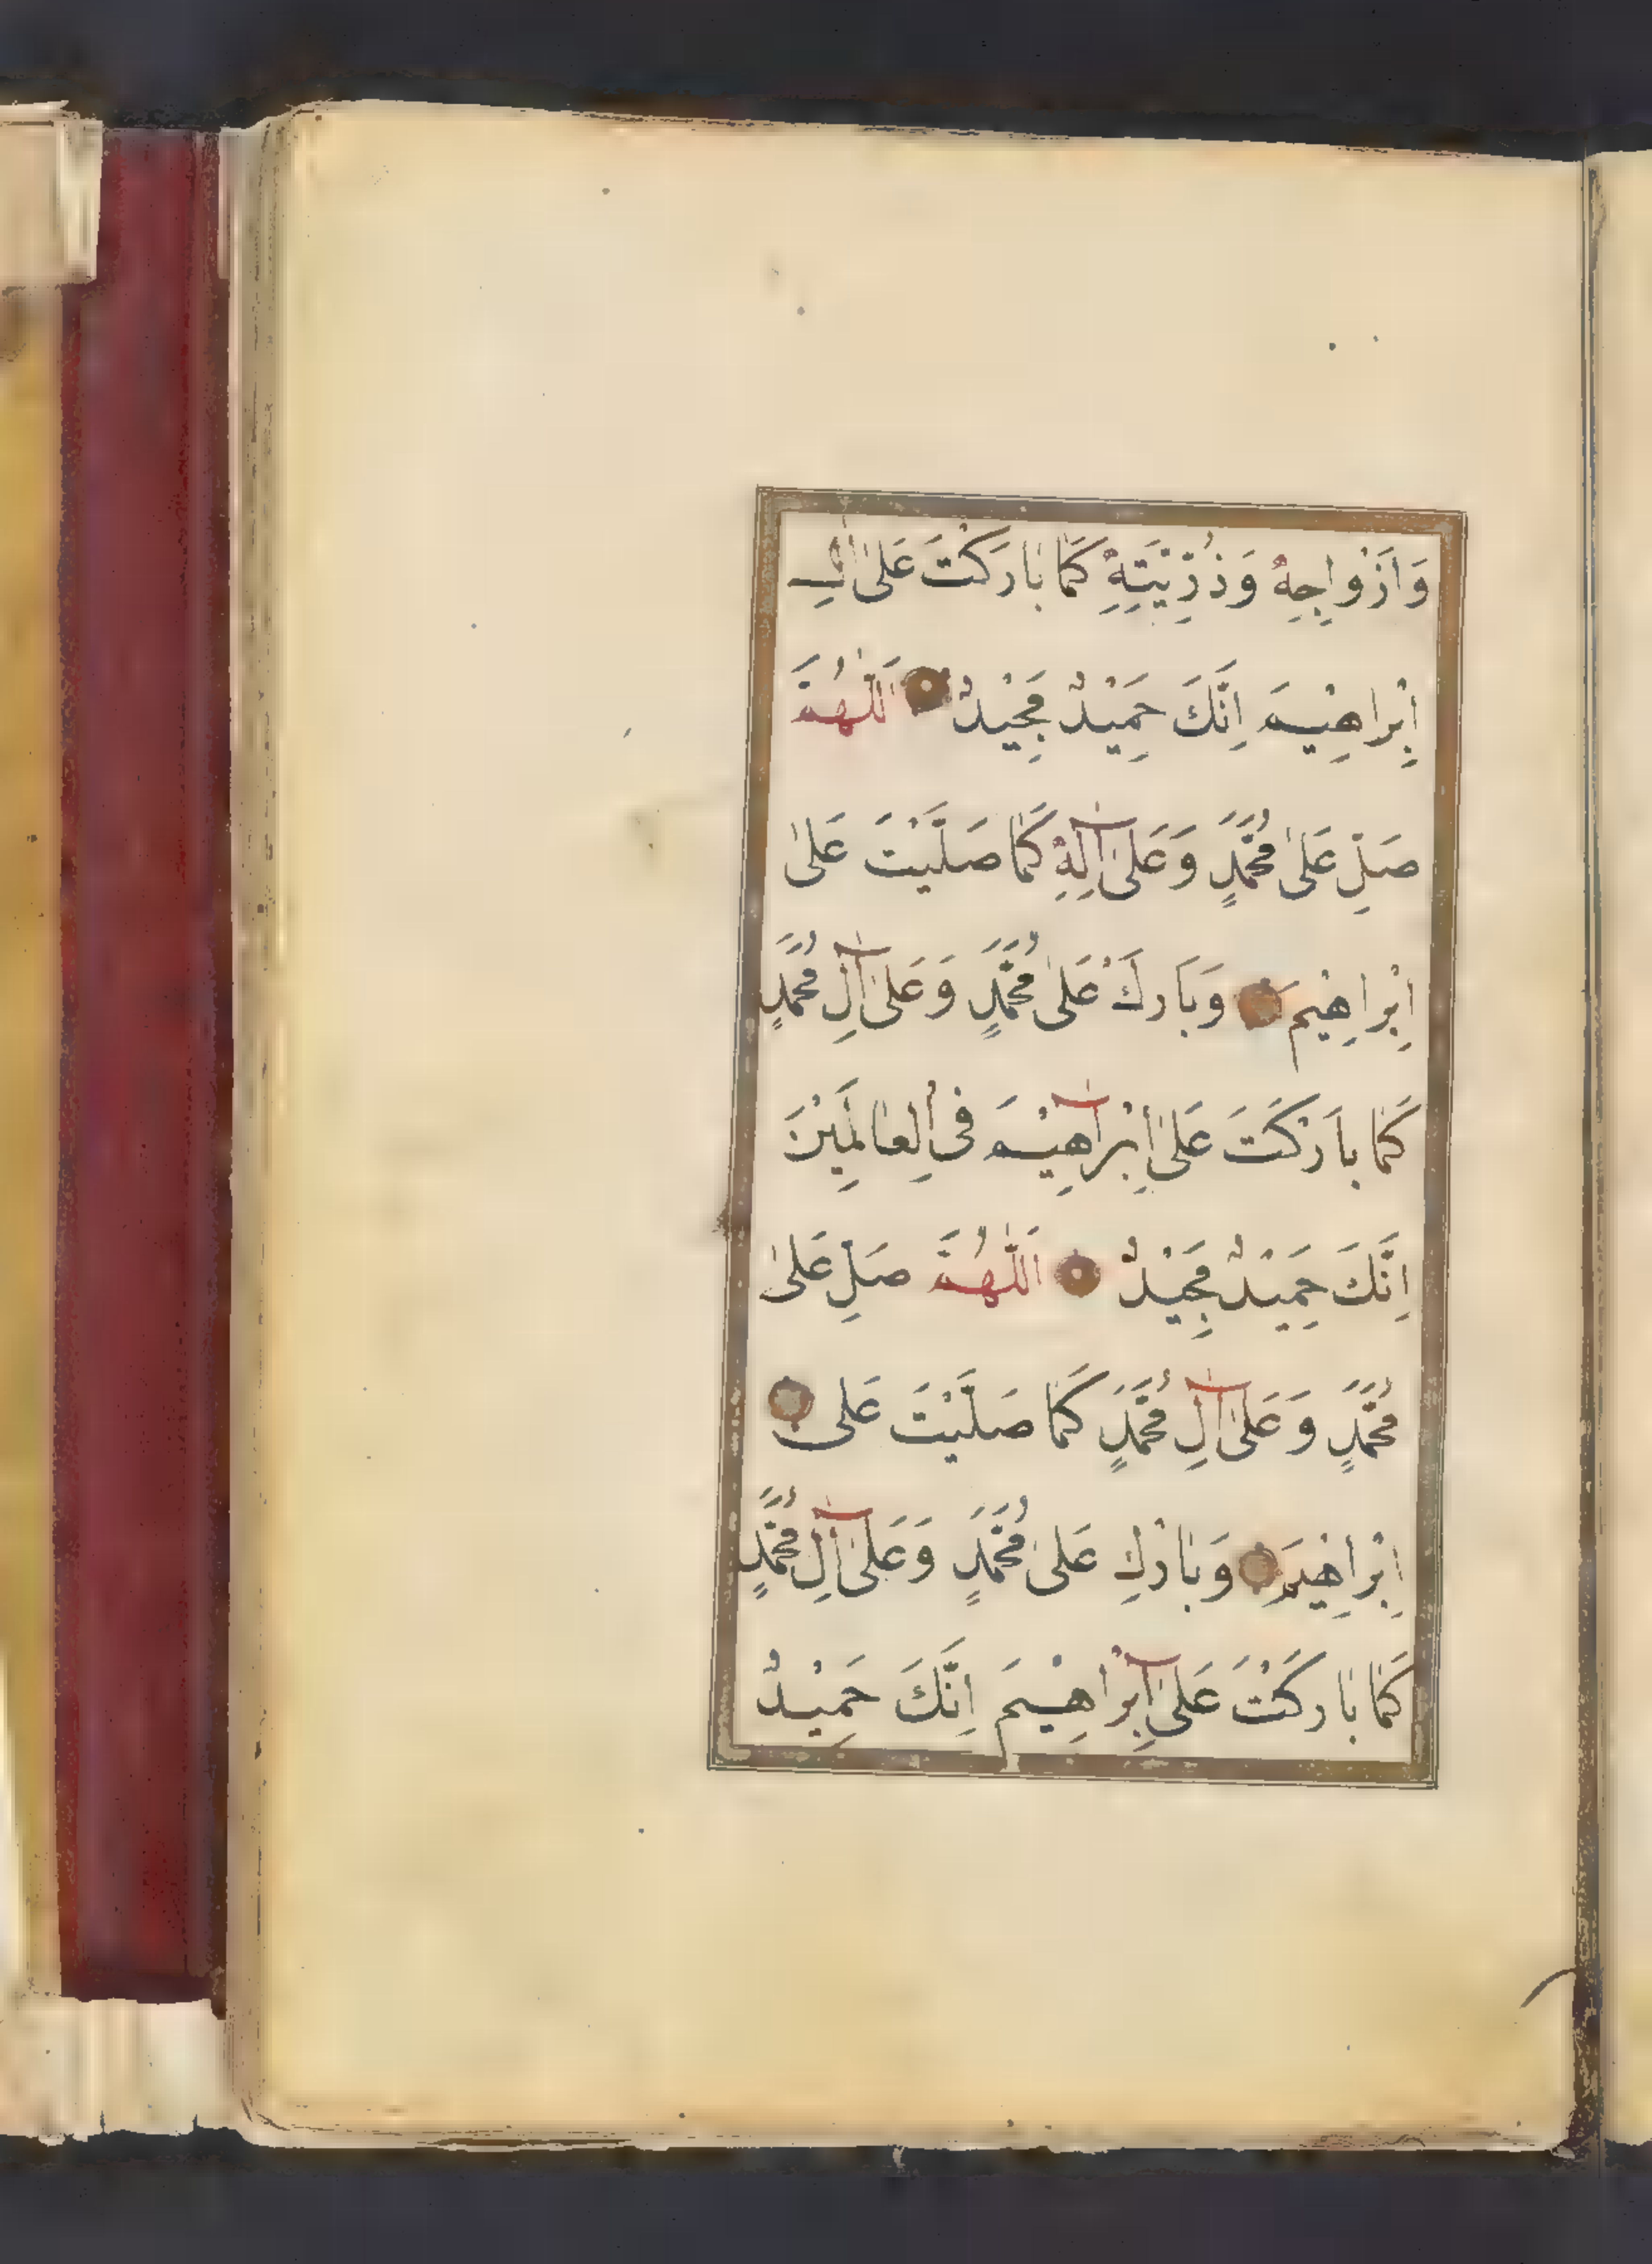 وَاَزْوَاجِهِ وَذُرِّيَّتِهِ كَمَا بَارَكْتَ عَلٰى اٰلِ
اِبْرَاهِيْمَ اِنَّكَ حَمِيْدٌ مَجِيْدٌ اَللّٰهُمَّ
صَلِّ عَلٰى مُحَمَّدٍ وَعَلٰى اٰلِهِ كَمَا صَلَّيْتَ عَلٰى
اِبْرَاهِيْمَ وَبَارِكْ عَلٰى مُحَمَّدٍ وَعَلٰى اٰلِ مُحَمَّدٍ
كَمَا بَارَكْتَ عَلٰى اِبْرَاهِيْمَ فِى الْعَالَمِيْنَ
اِنَّكَ حَمِيْدٌ مَجِيْدٌ اَللّٰهُمَّ صَلِّ عَلٰى
مُحَمَّدٍ وَعَلٰى اٰلِ مُحَمَّدٍ كَمَا صَلَّيْتَ عَلٰى
اِبْرَاهِيْمَ وَبَارِكْ عَلٰى مُحَمَّدٍ وَعَلٰى اٰلِ مُحَمَّدٍ
كَمَا بَارَكْتَ عَلٰى اِبْرَاهِيْمَ اِنَّكَ حَمِيْدٌ